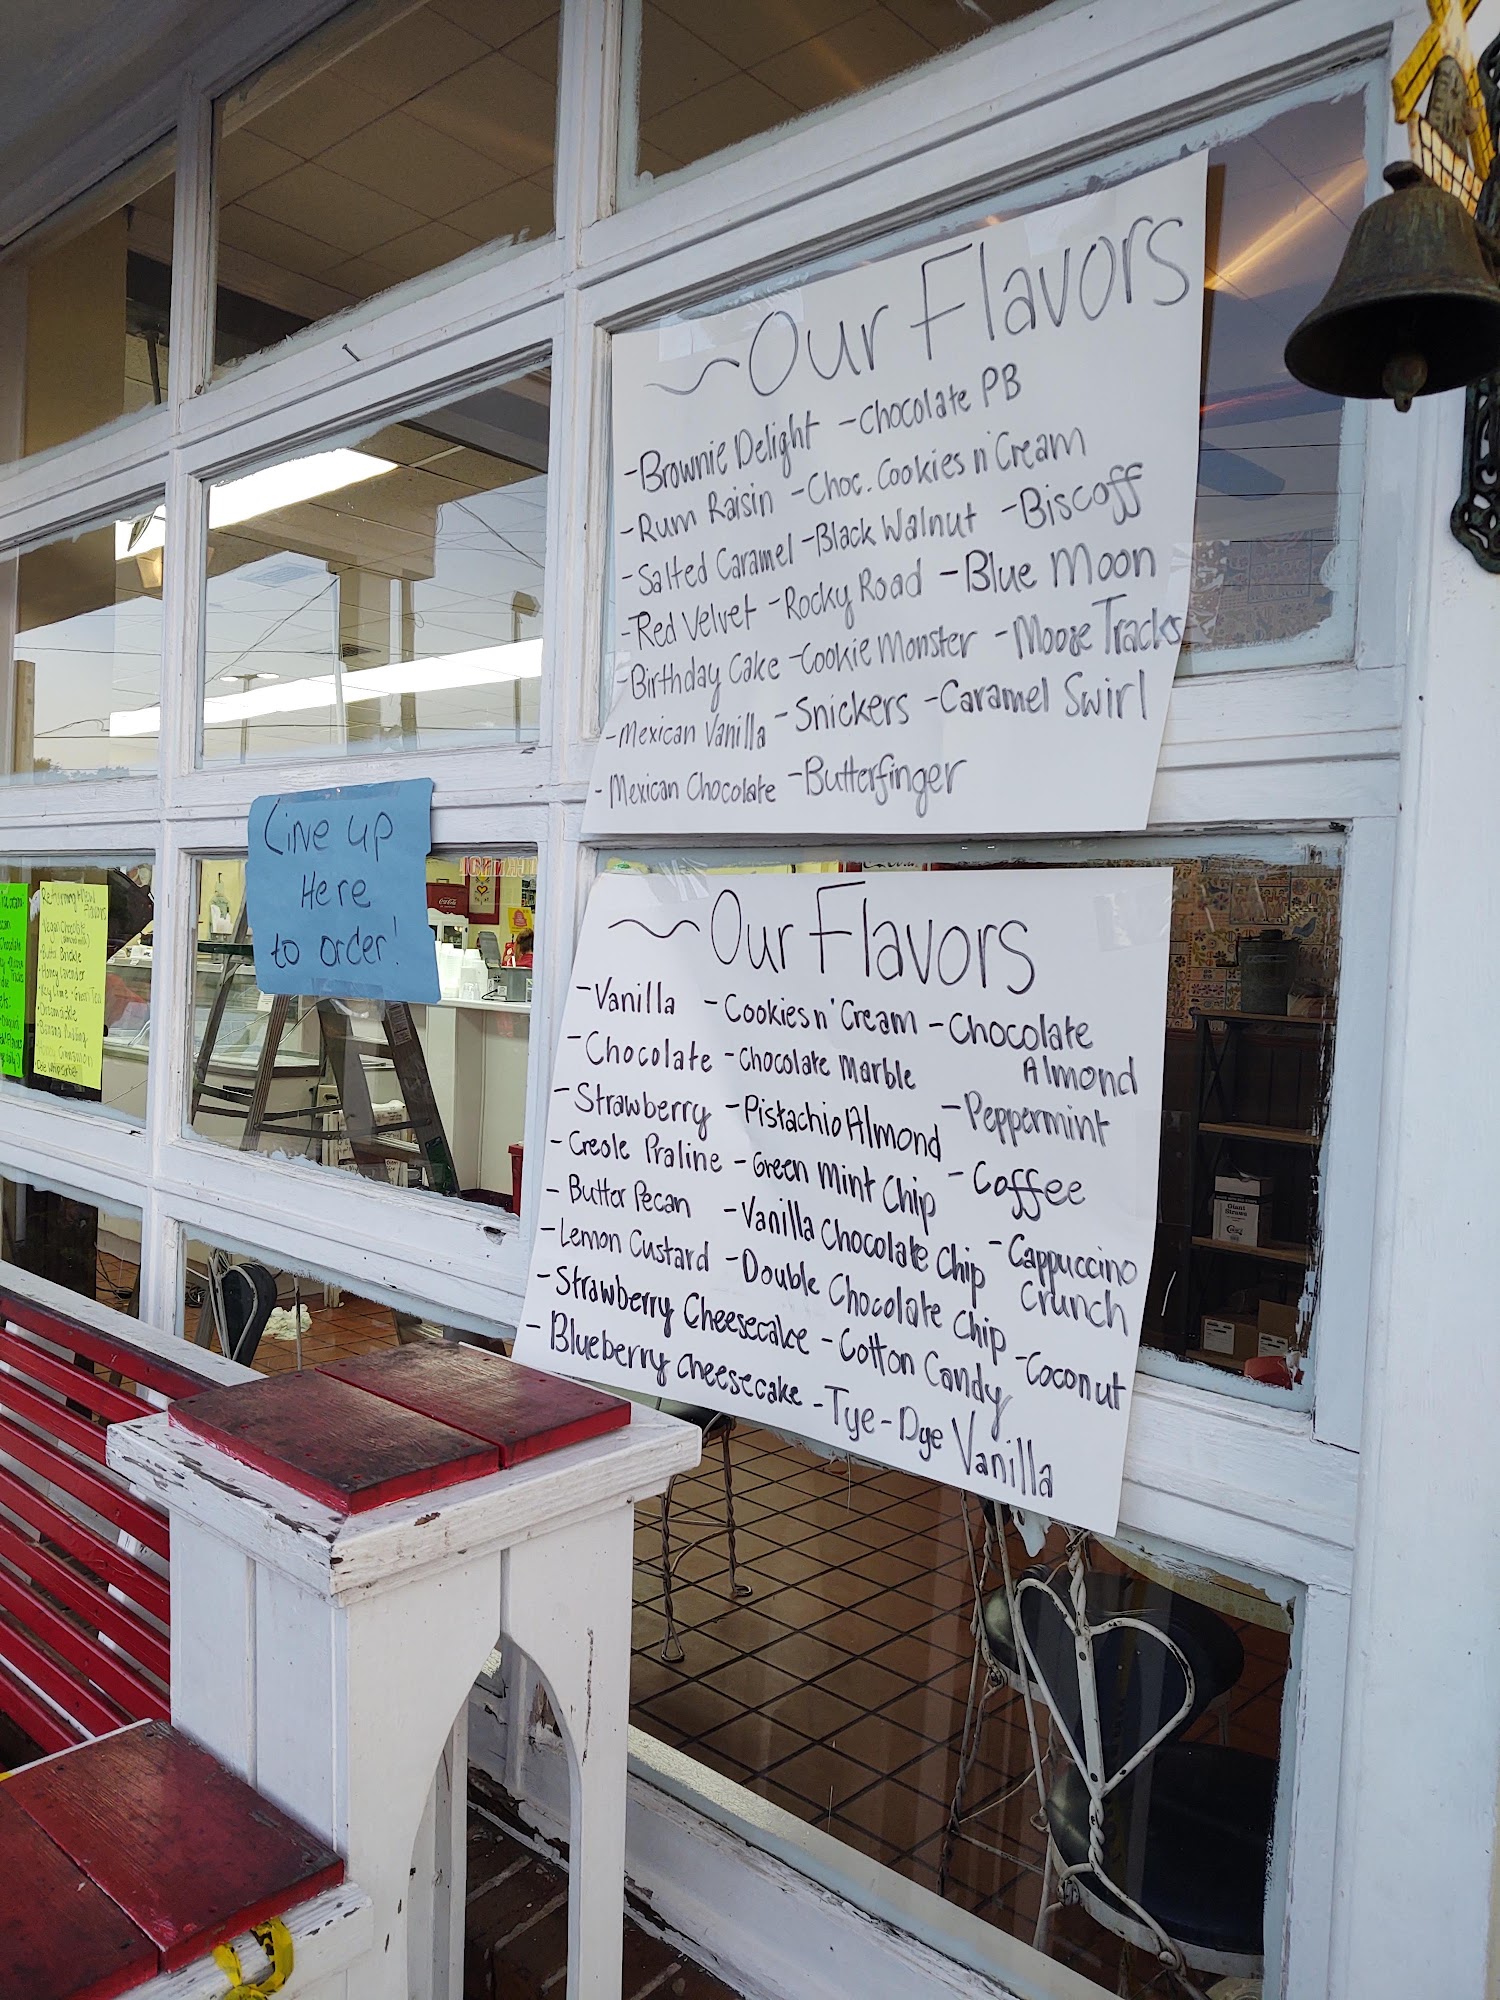 ~Our Flavors
-Brownie Delight -Chocolate PB
-Rum Raisin -Choc. Cookies n' Cream
-Salted Caramel -Black Walnut -Biscoff
-Red Velvet -Rocky Road -Blue Moon
-Birthday Cake -Cookie Monster -Moose Tracks
-Mexican Vanilla -Snickers -Caramel Swirl
-Mexican Chocolate -Butterfinger
Line up
Here
to order!
~Our Flavors
-Vanilla -Cookies n' Cream -Chocolate
Almond
-Chocolate -Chocolate Marble
-Strawberry -Pistachio Almond -Peppermint
-Creole Praline -Green Mint Chip -Coffee
-Butter Pecan -Vanilla Chocolate Chip -Cappuccino
Crunch
-Lemon Custard -Double Chocolate Chip -Coconut
-Strawberry Cheesecake -Cotton Candy
-Blueberry Cheesecake -Tye-Dye Vanilla
Returning + New
Flavors
Vegan Chocolate
-Butter Brickle
-Honey Lavender
-Key Lime -Green Tea
-Banana Pudding
Giant
Straws